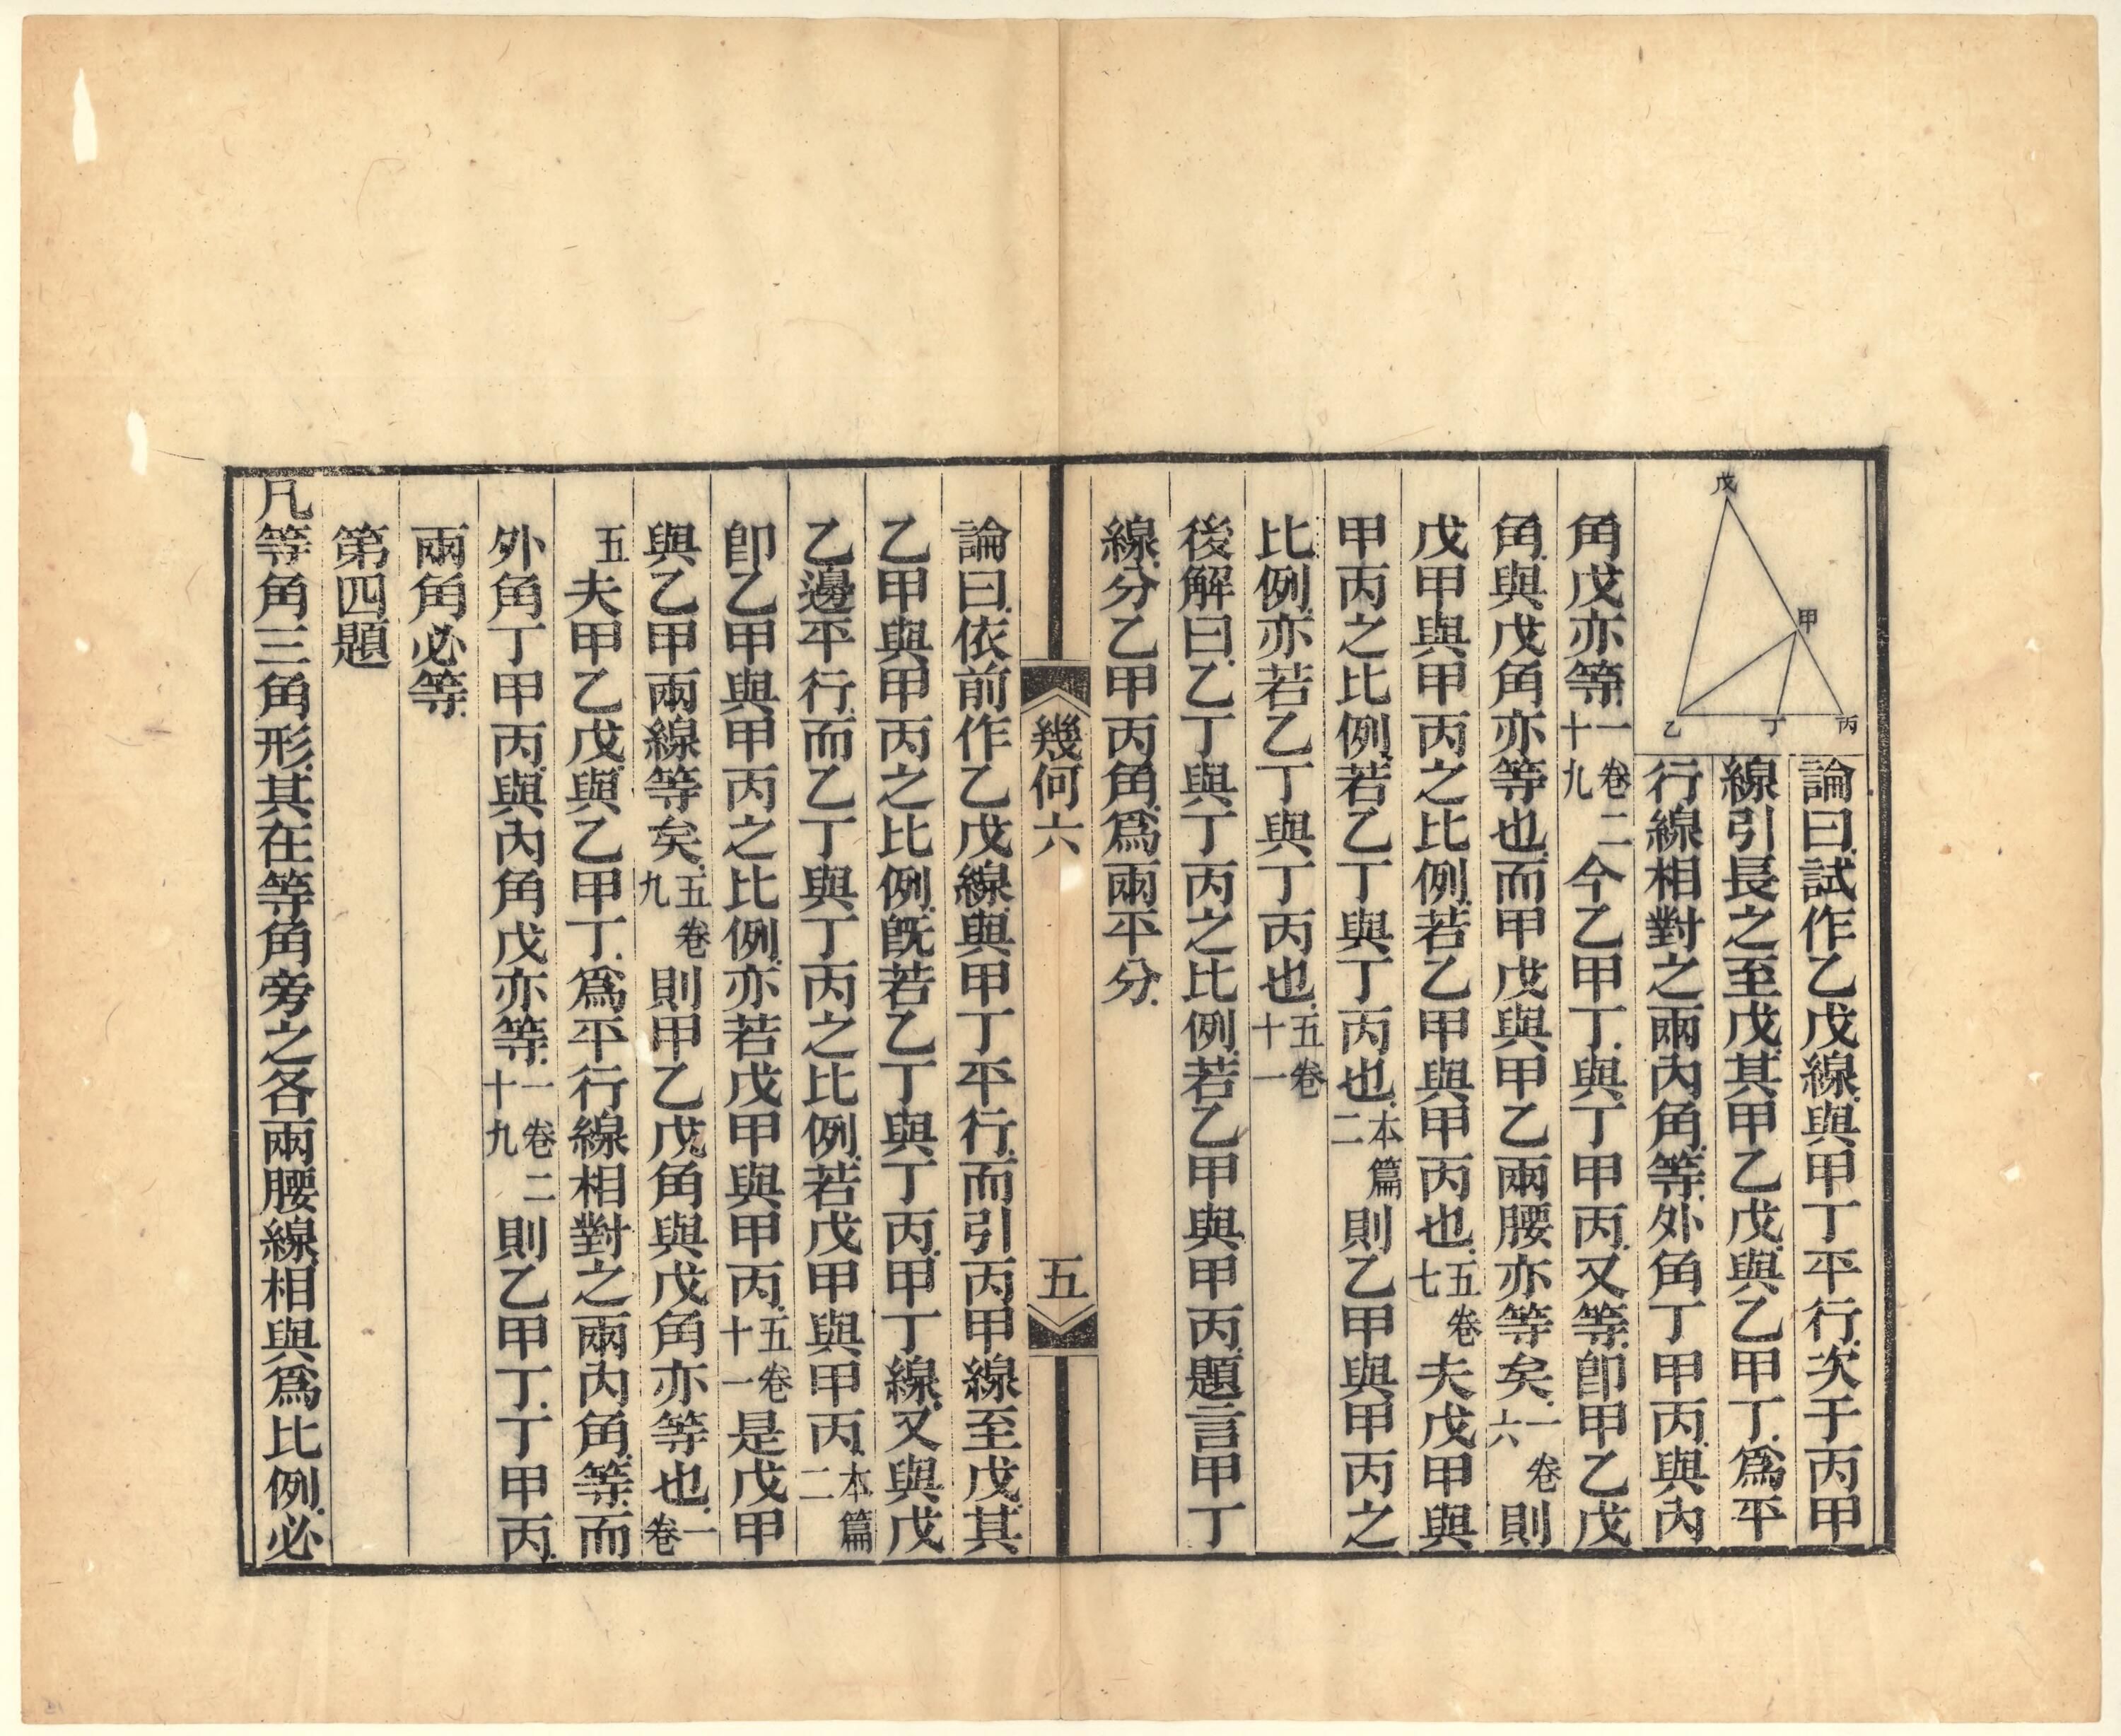 戊
甲
乙
丁
丙
論曰.試作乙戊線.與甲丁平行.次于丙甲
線引長之至戊.其甲乙戊.與乙甲丁.爲平
行線相對之兩內角.等.外角丁甲丙.與內
角戊亦等.一卷二十九今乙甲丁.與丁甲丙.又等.卽甲乙戊
角.與戊角亦等也.而甲戊與甲乙兩腰亦等矣.一卷六則
戊甲與甲丙之比例.若乙甲與甲丙也.五卷七夫戊甲與
甲丙之比例.若乙丁與丁丙也.本篇二則乙甲與甲丙之
比例.亦若乙丁與丁丙也.五卷十一
後解曰.乙丁與丁丙之比例.若乙甲與甲丙.題言甲丁
線.分乙甲丙角.爲兩平分.
幾何六
五
論曰.依前作乙戊線.與甲丁平行.而引丙甲線至戊.其
乙甲與甲丙之比例.旣若乙丁與丁丙.甲丁線.又與戊
乙邊平行.而乙丁與丁丙之比例.若戊甲與甲丙.本篇二
卽乙甲與甲丙之比例.亦若戊甲與甲丙.五卷十一是戊甲
與乙甲兩線等矣.五卷九則甲乙戊角與戊角亦等也.一卷
五夫甲乙戊.與乙甲丁.爲平行線相對之兩內角.等.而
外角丁甲丙.與內角戊亦等.一卷二十九則乙甲丁.丁甲丙.
兩角必等.
第四題
凡等角三角形.其在等角旁之各兩腰線.相與爲比例.必